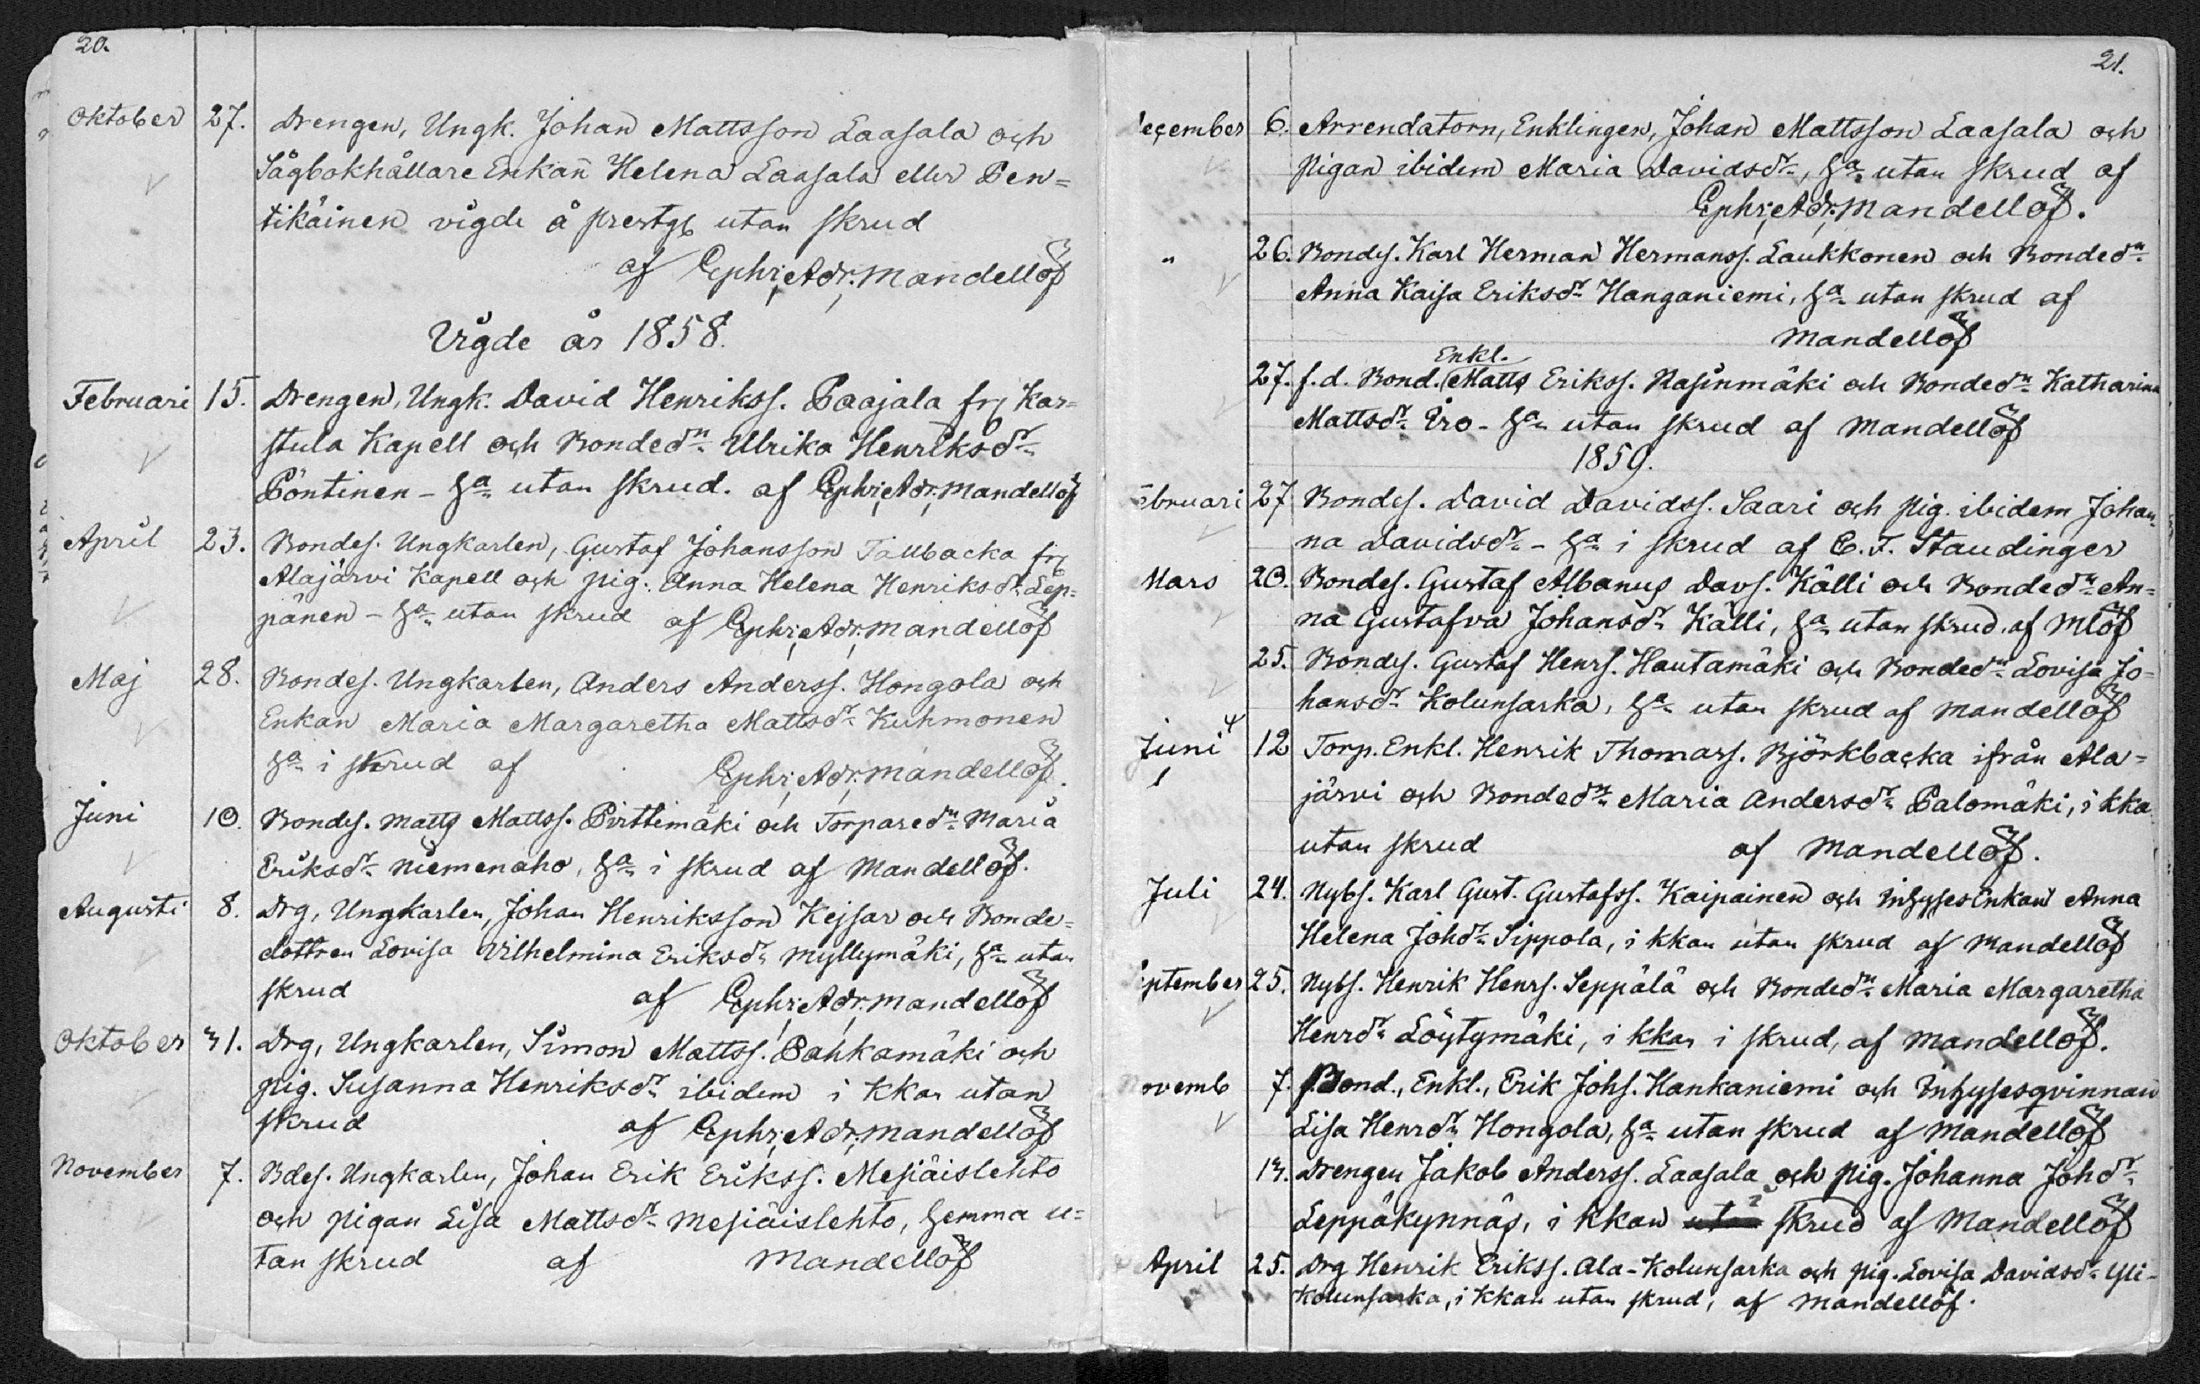 20.
Oktober 27. Drengen, Ungk. Johan Mattsson Laasala och
Sågbokhållare Enkan Helena Laasala eller Pen=
tikäinen vigde å prestg utan skrud
af Ephr; Adr; Mandellöf
Vigde år 1858.
Februari 15. Drengen, Ungk. David Henrikss. Paajala frg Kar=
stula Kapell och Bondedr Ulrika Henriksdr
Pöntinen - ha utan skrud. af Ephr; Adr; Mandellöf
April 23. Bondes. Ungkarlen, Gustaf Johansson Tallbacka frg
Alajärvi Kapell och pig. Anna Helena Henriksdr Lep=
pänen - ha utan skrud af Ephr; Adr; Mandellöf
Maj 28. Bondes. Ungkarlen, Anders Anderss. Hongola och
Enkan Maria Margaretha Mattsdr Kuhmonen
ha i skrud af Ephr; Adr; Mandellöf.
Juni 10. Bondes. Matts Mattss. Pirttimäki och Torparedr Maria
Eriksdr Niemenaho, ha i skrud af Mandellöf.
Augusti 8. Drg, Ungkarlen, Johan Henriksson Kejsar och Bonde=
dottren Lovisa Vilhelmina Eriksdr Myllymäki, ha utan
skrud af Ephr; Adr; Mandellöf
Oktober 31. Drg, Ungkarlen, Simon Mattss. Pahkamäki och
pig. Susanna Henriksdr ibidem i kkan utan
skrud af Ephr; Adr; Mandellöf
November 7. Bdes. Ungkarlen, Johan Erik Erikss. Mesiäislehto
och pigan Lisa Mattsdr Mesiäislehto, hemma u=
tan skrud af Mandellöf
21.
December 6. Arrendatorn, Enklingen, Johan Mattsson Laasala och
pigan ibidem Maria Davidsdr, ha utan skrud af
Ephr; Adr; Mandellöf.
" 26. Bondes. Karl Herman Hermanss. Laukkonen och Bondedr
Anna Kaisa Eriksdr Hanganiemi, ha utan skrud af
Mandellöf
Enkl.
27. f.d. Bond. Matts Erikss. Rasinmäki och Bondedr Katharina
Mattsdr Iro - ha utan skrud af Mandellöf
1859.
ebruari 27 Bondes. David Davidss. Saari och pig. ibidem Johan=
na Davidsdr - ha i skrud af C. F. Staudinger
Mars 20. Bondes. Gustaf Albanus Davs. Källi och Bondedr An=
na Gustafva Johansdr Källi, ha utan skrud. af Mlöf
25. Bondes. Gustaf Henrs. Hautamäki och Bondedr Lovisa Jo=
hansdr Kolunsarka, ha utan skrud af Mandellöf
Juni 12 Torp. Enkl. Henrik Thomass. Björkbacka ifrån Ala=
järvi och Bondedr Maria Andersdr Palomäki, i kka
utan skrud af Mandellöf.
Juli 24. Nybs. Karl Gust. Gustafss. Kaipainen och Inhysesenkan Anna
Helena Johdr Sippola, i kkan utan skrud af Mandellöf
eptember 25. Nybs. Henrik Henrs. Seppälä och Bondedr Maria Margaretha
Henrdr Löytymäki, i kkan i skrud, af Mandellöf.
Novemb 7. Bond., Enkl., Erik Johs. Hankaniemi och Inhysesqvinnan
Lisa Henrdr Hongola, ha utan skrud af Mandellöf
13. Drengen Jakob Anderss. Laasala och pig. Johanna Johdr
Leppäkynnäs, i kkan utan i skrud af Mandellöf
April 25. Drg Henrik Erikss. Ala-Kolunsarka och pig. Lovisa Davidsdr Yli-
Kolunsarka, i kkan utan skrud, af Mandellöf.